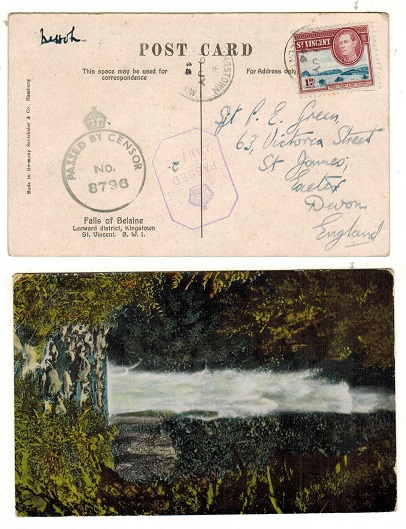 POST CARD
This space may be used for
correspondence
For Address only
ST VINCENT
1D
PASSED BY CENSOR
No.
8796
PASSED
2.
Sgt P. E. Green,
63, Victoria Street
St James,
Exeter
Devon
England
Falls of Belaine
Leeward district, Kingstown
St. Vincent. B. W. I.